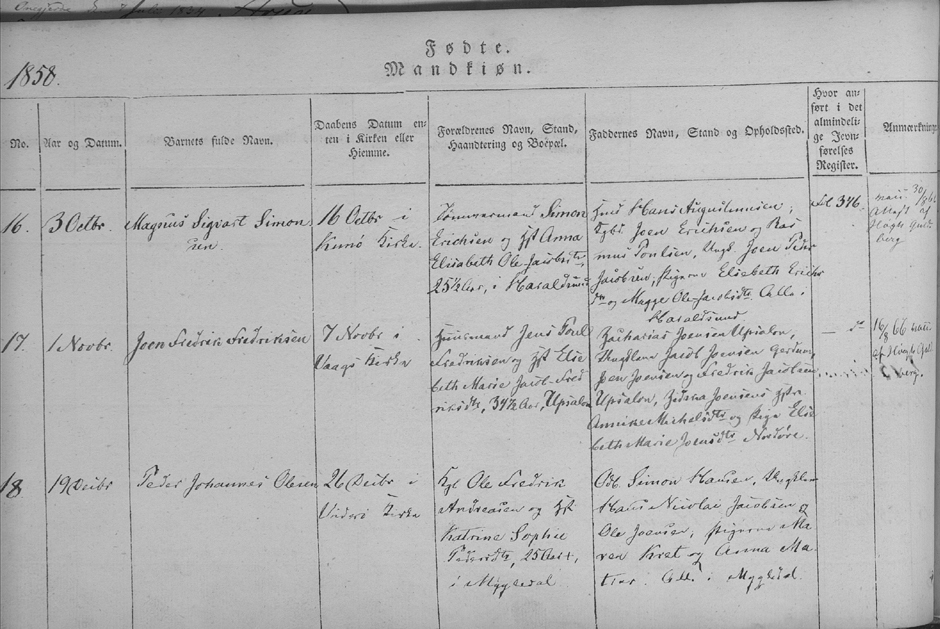 1858.
Fødte.
Mandkiøn.
No.
Aar og Datum.
Barnets fulde Navn.
Daabens Datum en-
ten i Kirken eller
Hiemme.
Forældrenes Navn, Stand,
Haandtering og Boepæl.
Faddernes Navn, Stand og Opholdssted.
Hvor an-
ført i det
almindeli-
ge Jevn-
førelses
Register.
Anmærkninge
16.
3 Octbr.
Magnus Sigvart Simon
sen.
16 Octbr i
Kunø Kirke
Tømmermand Simon
Erichsen og Hst Anna
Elisabeth Ole Jacobsdtr,
25½ Aar, i Haraldsund
Hans Augustinusen,
Joen Erichsen og Ras
mus Poulsen, Ungk. Joen Peder
Jacobsen; Pigerne Elisabeth Erichs
dtr og Magge Ole Jacobsdtr. Alle i
Haraldsund
Fol 346.
30/8 62
17.
1 Novbr.
Joen Fredrik Fredriksen
7 Novbr i
Vaags Kirke
Huusmand Jens Poul
Fredriksen og Hst Elis
beth Marie Jacob Fred
riksdtr, 34½ Aar, Upsalen
Zacharias Joensen Upsalen,
Ungkarle Jacob Joensen
Joen Joensen og Fredrik Jacobsen
Upsalen, Joensens Hstr
Annike Michelsdtr og Pige Elis
beth Marie Joensdtr Nordøre.
— do
16/8 66
18
19 Decbr
Peder Johannes Olesen
26 Decbr i
Viderø Kirke
Kgl Ole Fredrik
Andreasen og Hst
Katrine Sophie
Pedersdtr, 25 Aar,
i Mygledal.
Odb Simon Hansen, Ungkarle
Hans Nicolai Jacobsen og
Ole Joensen, Pigerne Ma
ren Kret og Anna Ma
Alle i Mygledal.